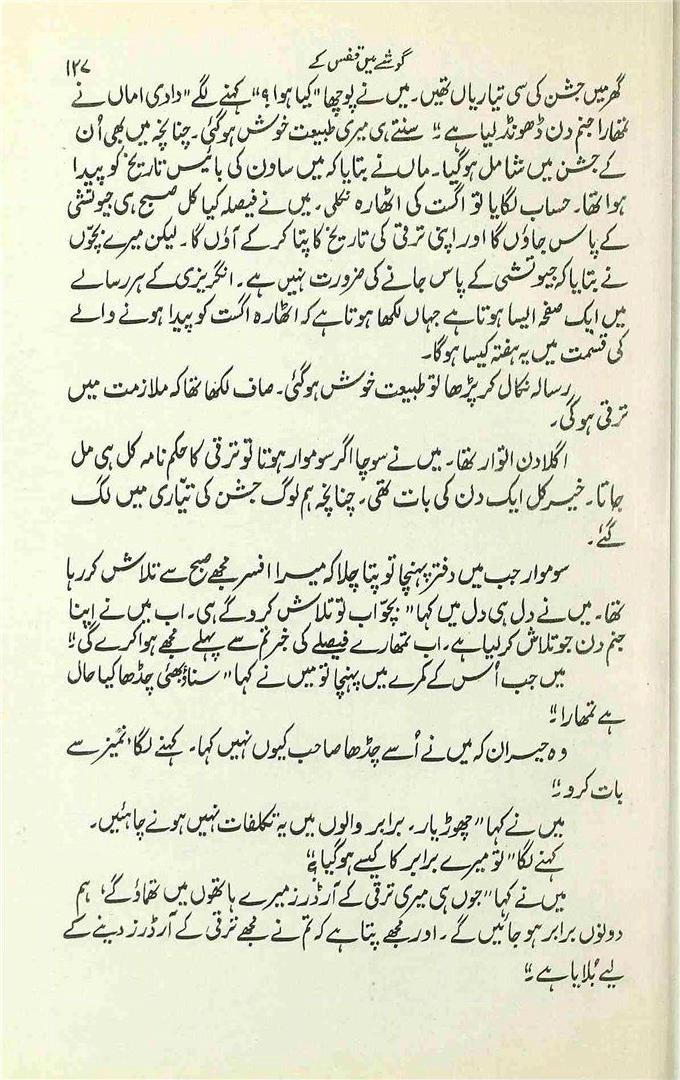 گوشے میں قفس کے
۱۲۷
گھر میں جشن کی سی تیاریاں تھیں۔ میں نے پوچھا "کیا ہوا؟" کہنے لگے "دادی اماں نے
تمھارا جنم دن ڈھونڈ لیا ہے۔" سنتے ہی میری طبیعت خوش ہوگئی۔ چنانچہ میں بھی اُن
کے جشن میں شامل ہوگیا۔ ماں نے بتایا کہ میں ساون کی بائیس تاریخ کو پیدا
ہوا تھا۔ حساب لگایا تو اگست کی اٹھارہ نکلی۔ میں نے فیصلہ کیا کل صبح ہی جیوتشی
کے پاس جاؤں گا اور اپنی ترقی کی تاریخ کا پتا کرکے آؤں گا۔ لیکن میرے بچوّں
نے بتایا کہ جیوتشی کے پاس جانے کی ضرورت نہیں ہے۔ انگریزی کے ہر رسالے
میں ایک صفحہ ایسا ہوتا ہے جہاں لکھا ہوتا ہے کہ اٹھارہ اگست کو پیدا ہونے والے
کی قسمت میں یہ ہفتہ کیسا ہوگا۔
رسالہ نکال کر پڑھا تو طبیعت خوش ہوگئی۔ صاف لکھا تھا کہ ملازمت میں
ترقی ہوگی۔
اگلا دن اتوار تھا۔ میں نے سوچا اگر سوموار ہوتا تو ترقی کا حکم نامہ کل ہی مل
جاتا۔ خیر کل ایک دن کی بات تھی۔ چنانچہ ہم لوگ جشن کی تیّاری میں لگ
گئے۔
سوموار جب میں دفتر پہنچا تو پتا چلا کہ میرا افسر مجھے صبح سے تلاش کر رہا
تھا۔ میں نے دل ہی دل میں کہا "بچوّ اب تو تلاش کروگے ہی۔ اب میں نے اپنا
جنم دن جو تلاش کرلیا ہے۔ اب تمھارے فیصلے کی خبر تم سے پہلے مجھے ہوا کرے گی۔"
میں جب اُس کے کمرے میں پہنچا تو میں نے کہا "سناؤ بھئی چڈھا کیا حال
ہے تمھارا۔"
وہ حیران کہ میں نے اُسے چڈھا صاحب کیوں نہیں کہا۔ کہنے لگا، "تمیز سے
بات کرو۔"
میں نے کہا "چھوڑ یار، برابر والوں میں یہ تکلفات نہیں ہونے چاہئیں۔
کہنے لگا "تو میرے برابر کا کیسے ہوگیا؟"
میں نے کہا "جوں ہی میری ترقی کے آرڈرز میرے ہاتھوں میں تھماؤگے، ہم
دونوں برابر ہو جائیں گے۔ اور مجھے پتا ہے کہ تم نے مجھے ترقی کے آرڈرز دینے کے
لیے بُلایا ہے۔"